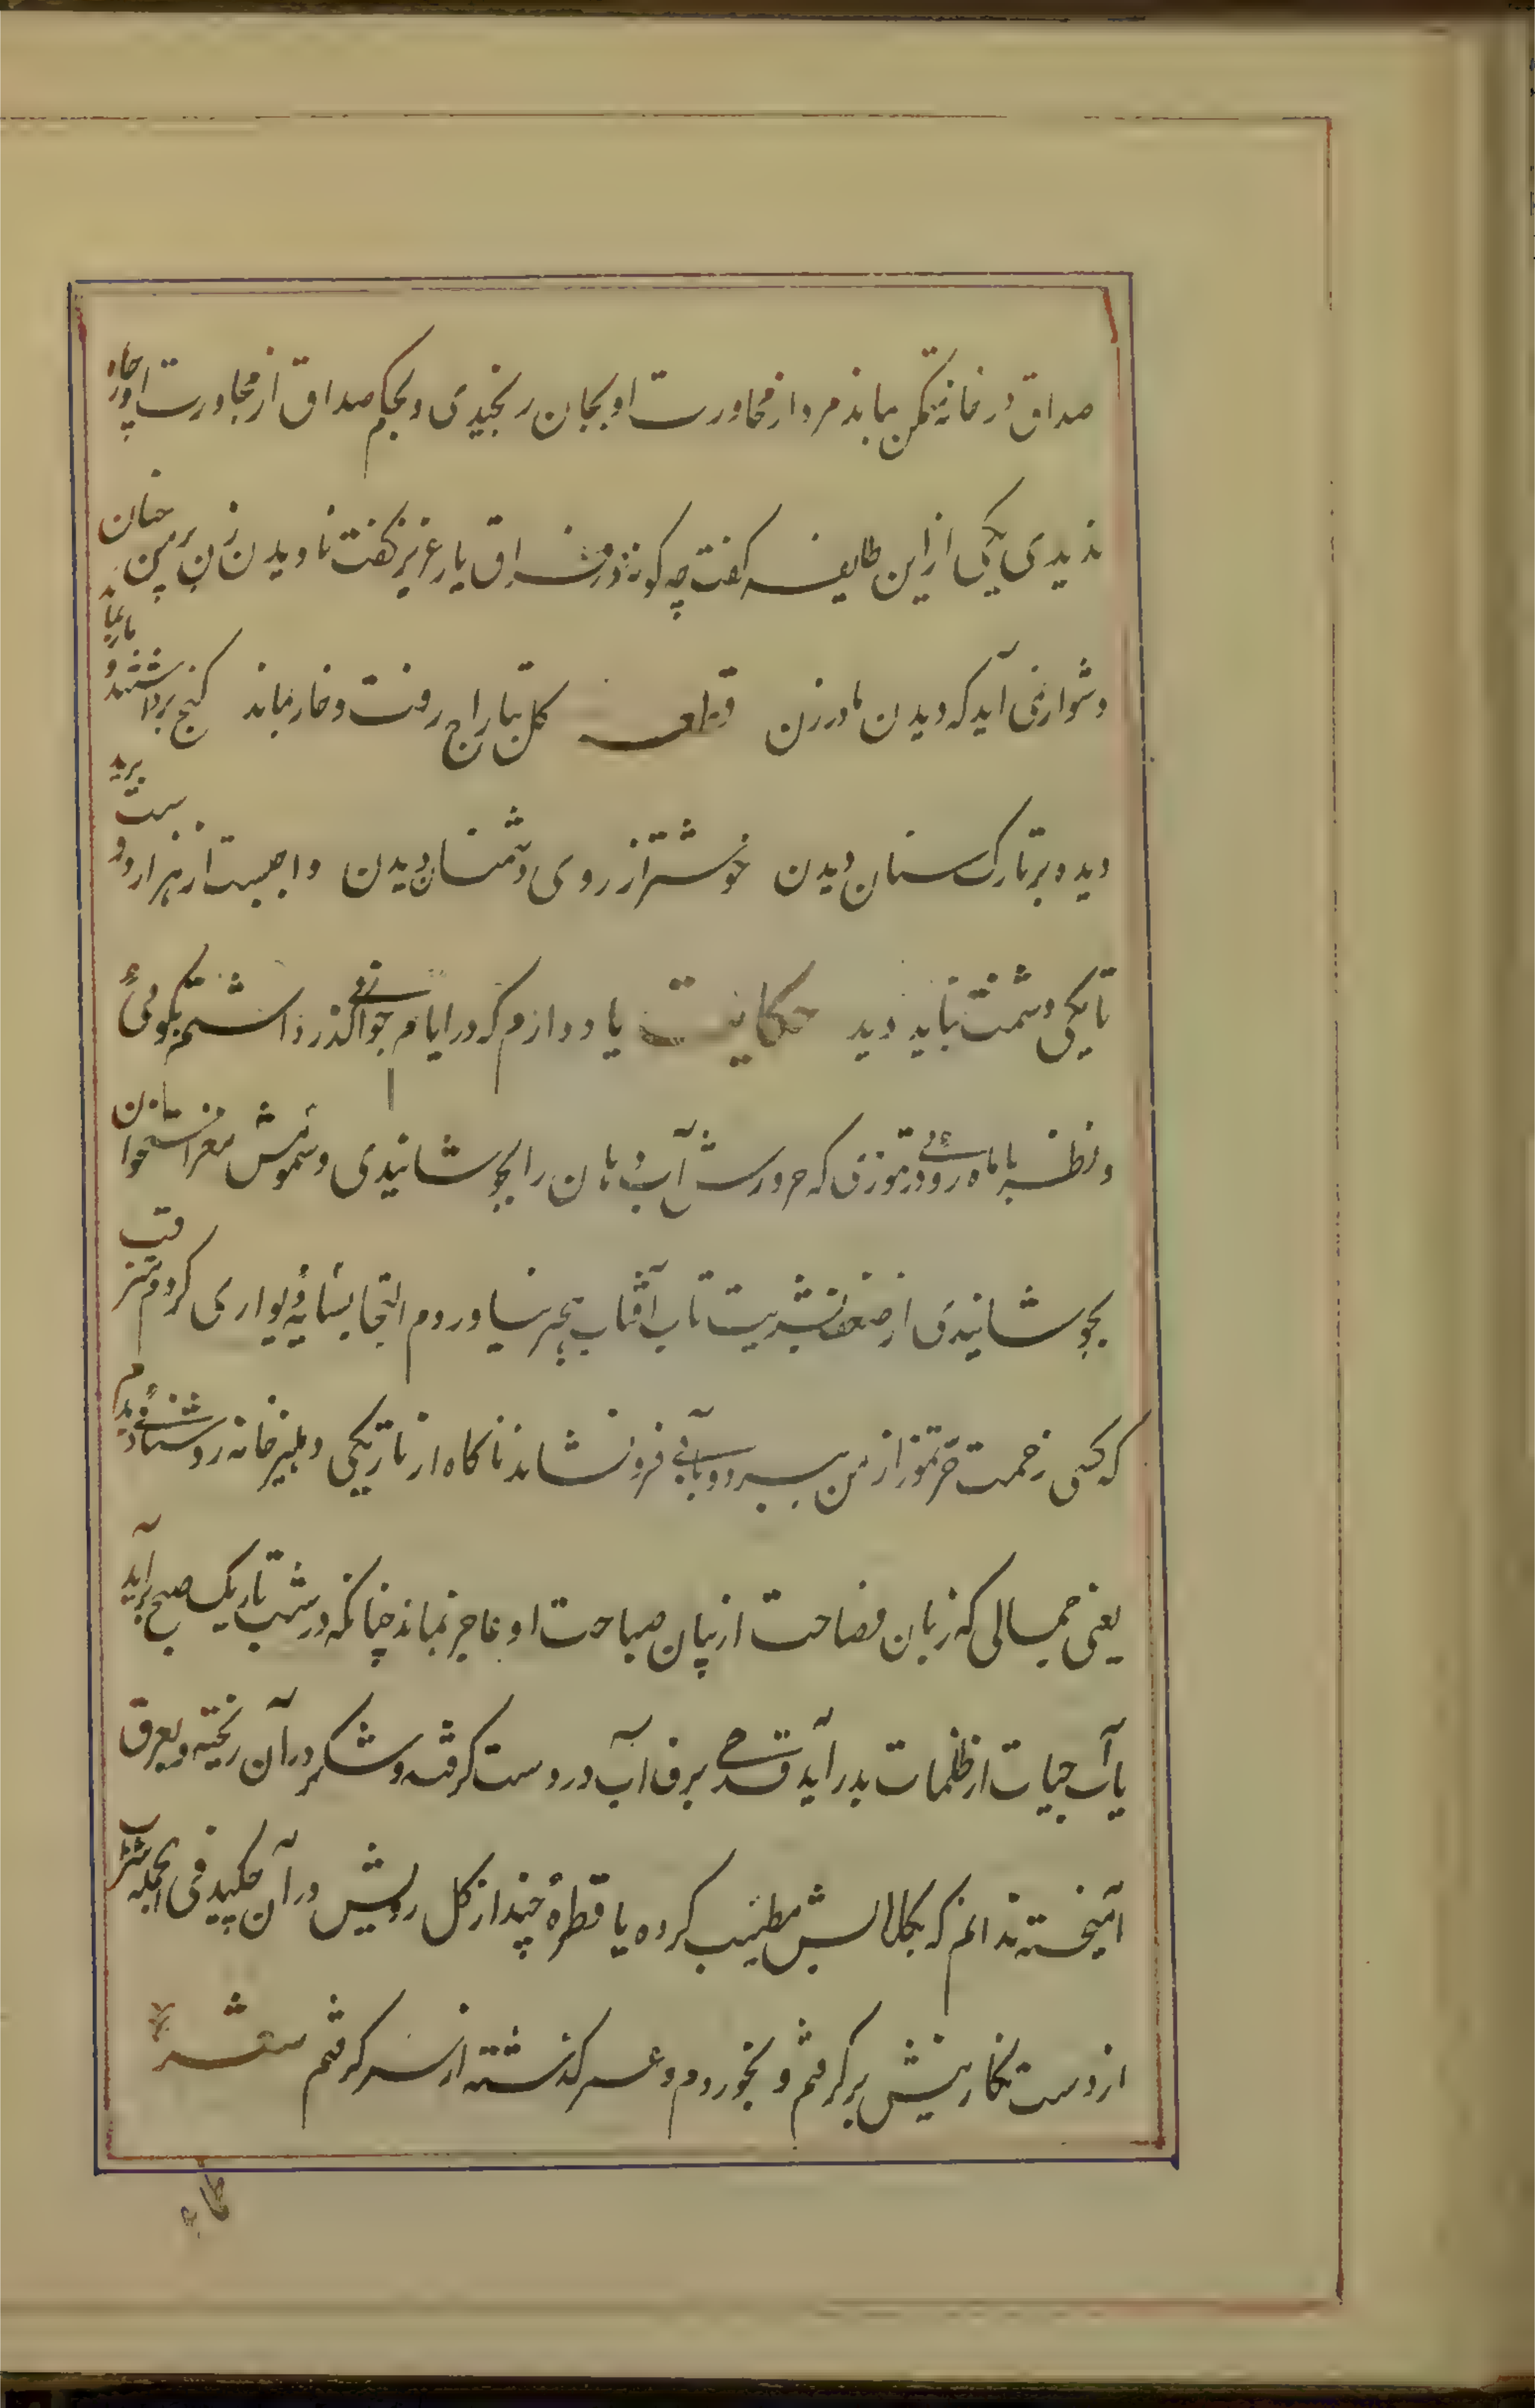 صداق در خانه متمکن بماند مرد از محاورت او بجان رنجیدی و بحکم صداق از مجاورت او چاره
ندیدی یکی از این طایفه گفت چه گونه در فراق یار عزیز گفت نادیدن زن بر من چنان
دشوار نمی آید که دیدن مادر زن قطعه گل بتاراج رفت و خار بماند گنج برداشتند و مار بماند
دیده بر تارک سنان دیدن خوشتر از روی دشمنان دیدن واجبست از هزار دوست برید
تا یکی دشمنت نباید دید حکایت یاد دارم که در ایام جوانی گذر داشتم بکوئی
و نظر با ماه روئی در تموزی که حرورش آب دهان را بجوشانیدی و سمومش مغز استخوان
بجوشانیدی از ضعف بشریت تاب آفتاب هجیر نیاوردم التجا بسایه دیواری کردم مترقب
که کسی زحمت حر تموز از من ببرد و بابی فرو نشاند ناگاه از تاریکی دهلیز خانه روشنائی دیدم
یعنی جمالی که زبان فصاحت از بیان صباحت او عاجز بماند چنانکه در شب تاریک صبح برآید
یا آب حیات از ظلمات بدر آید قدحی برف آب در دست گرفته و شکر در آن ریخته و بعرق
آمیخته ندانم که بگلابش مطیب کرده یا قطرهٔ چند از گل رویش در آن چکید فی الجمله شراب
از دست نگارینش بر گرفتم و بخوردم و عمر گذشته از سر گرفتم شعر